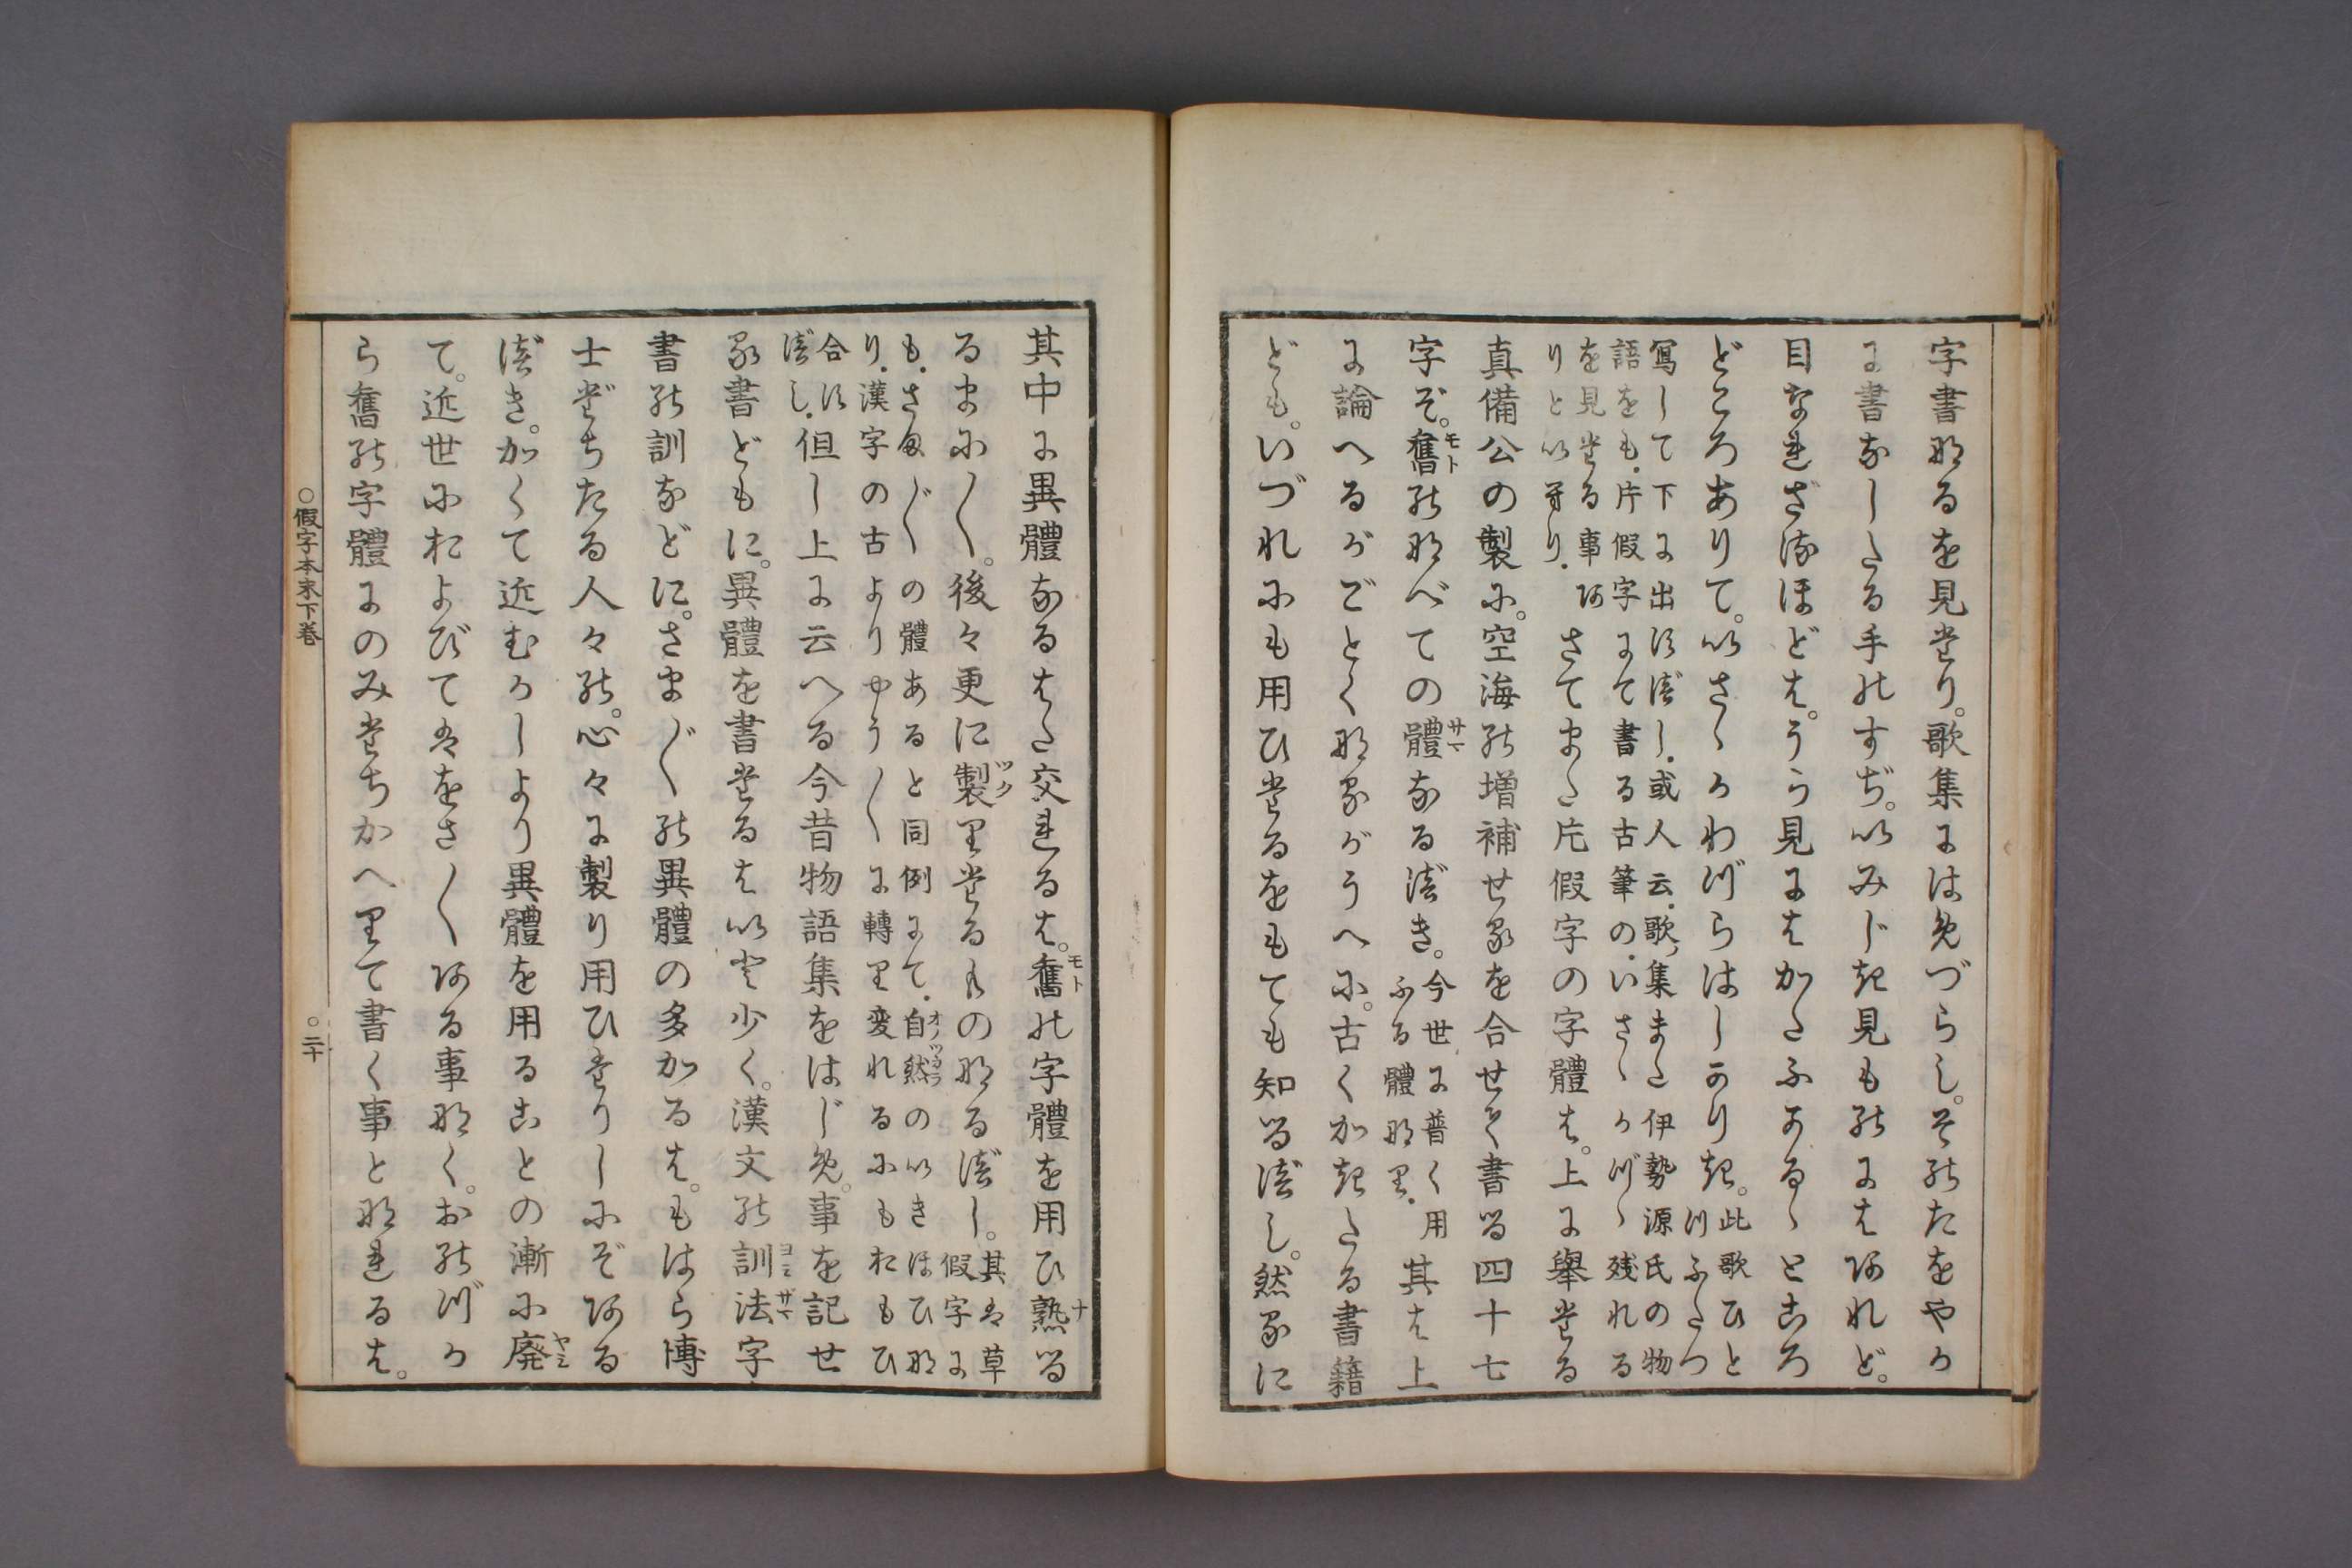 字書なるを見たり。歌集にはめづらし。そのたをやか
に書なしたる手のすぢ。いみじき見ものにはあれど。
目なれざるほどは。うち見にはかたふかるゝところ
どころありて。いさゝかわづらはしかりき。此歌ひと
つふたつ
寫して下に出すべし。或人云。歌集また伊勢源氏の物
語をも。片假字にて書る古筆の。いさゝかづゝ残れる
を見たる事あ
りといへり。
さてまた片假字の字體は。上に擧たる
真備公の製に。空海の増補せるを合せて書つ四十七
字ぞ。舊モトのなべての體サマなるべき。今世に普く用
ふる體なり。
其は上
に論へるがごとくなるがうへに。古くかきたる書籍
ども。いづれにも用ひたるをもても知つべし。然るに
其中に異體なるはた交れるは。舊モトの字體を用ひ熟ナつ
るまに〱。後々更に製ツクりたるものなるべし。其は草
假字に
も。さま〲の體あると同例にて。自然オノヅカラのいきほひな
り。漢字の古よりやう〱に轉り変れるにもおもひ
合す
べし。
但し上に云へる今昔物語集をはじめ。事を記せ
る書どもに。異體を書たるはいと少く。漢文の訓ヨミ法ザマ字
書の訓などに。さま〲の異體の多かるは。もはら博
士だちたる人々の。心々に製り用ひたりしにぞある
べき。かくて近むかしより異體を用ることの漸に廃ヤミ
て。近世におよびてはをさ〱ある事なく。おのづか
ら舊の字體にのみたちかへりて書く事となれるは。
○假字本末下巻
○二十